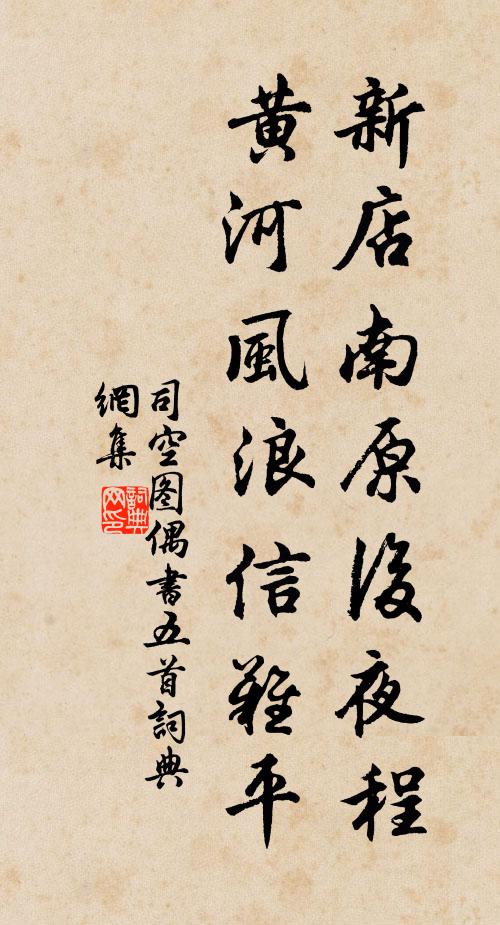 新店南原後夜程
黄河風浪信難平
司空图偶書五首詞典
網集
詞典
网印